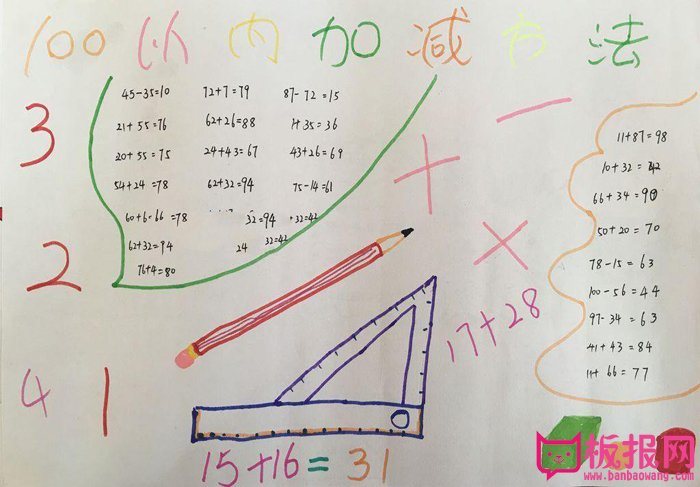 100以内加减方法
3
2
4 1
45-35=10 72+7=79 87-72=15
21+55=76 62+26=88 1+35=36
20+55=75 24+43=67 43+26=69
54+24=78 62+32=94 75-14=61
60+6=66=78 32=94 32=42
62+32=94 24 32=42
76+4=80
+ - ×
11+87=98
10+32=42
66+34=90
50+20=70
78-15=63
100-56=44
97-34=63
41+43=84
11+66=77
17+28
15+16=31
板报网
www.banbaowang.com